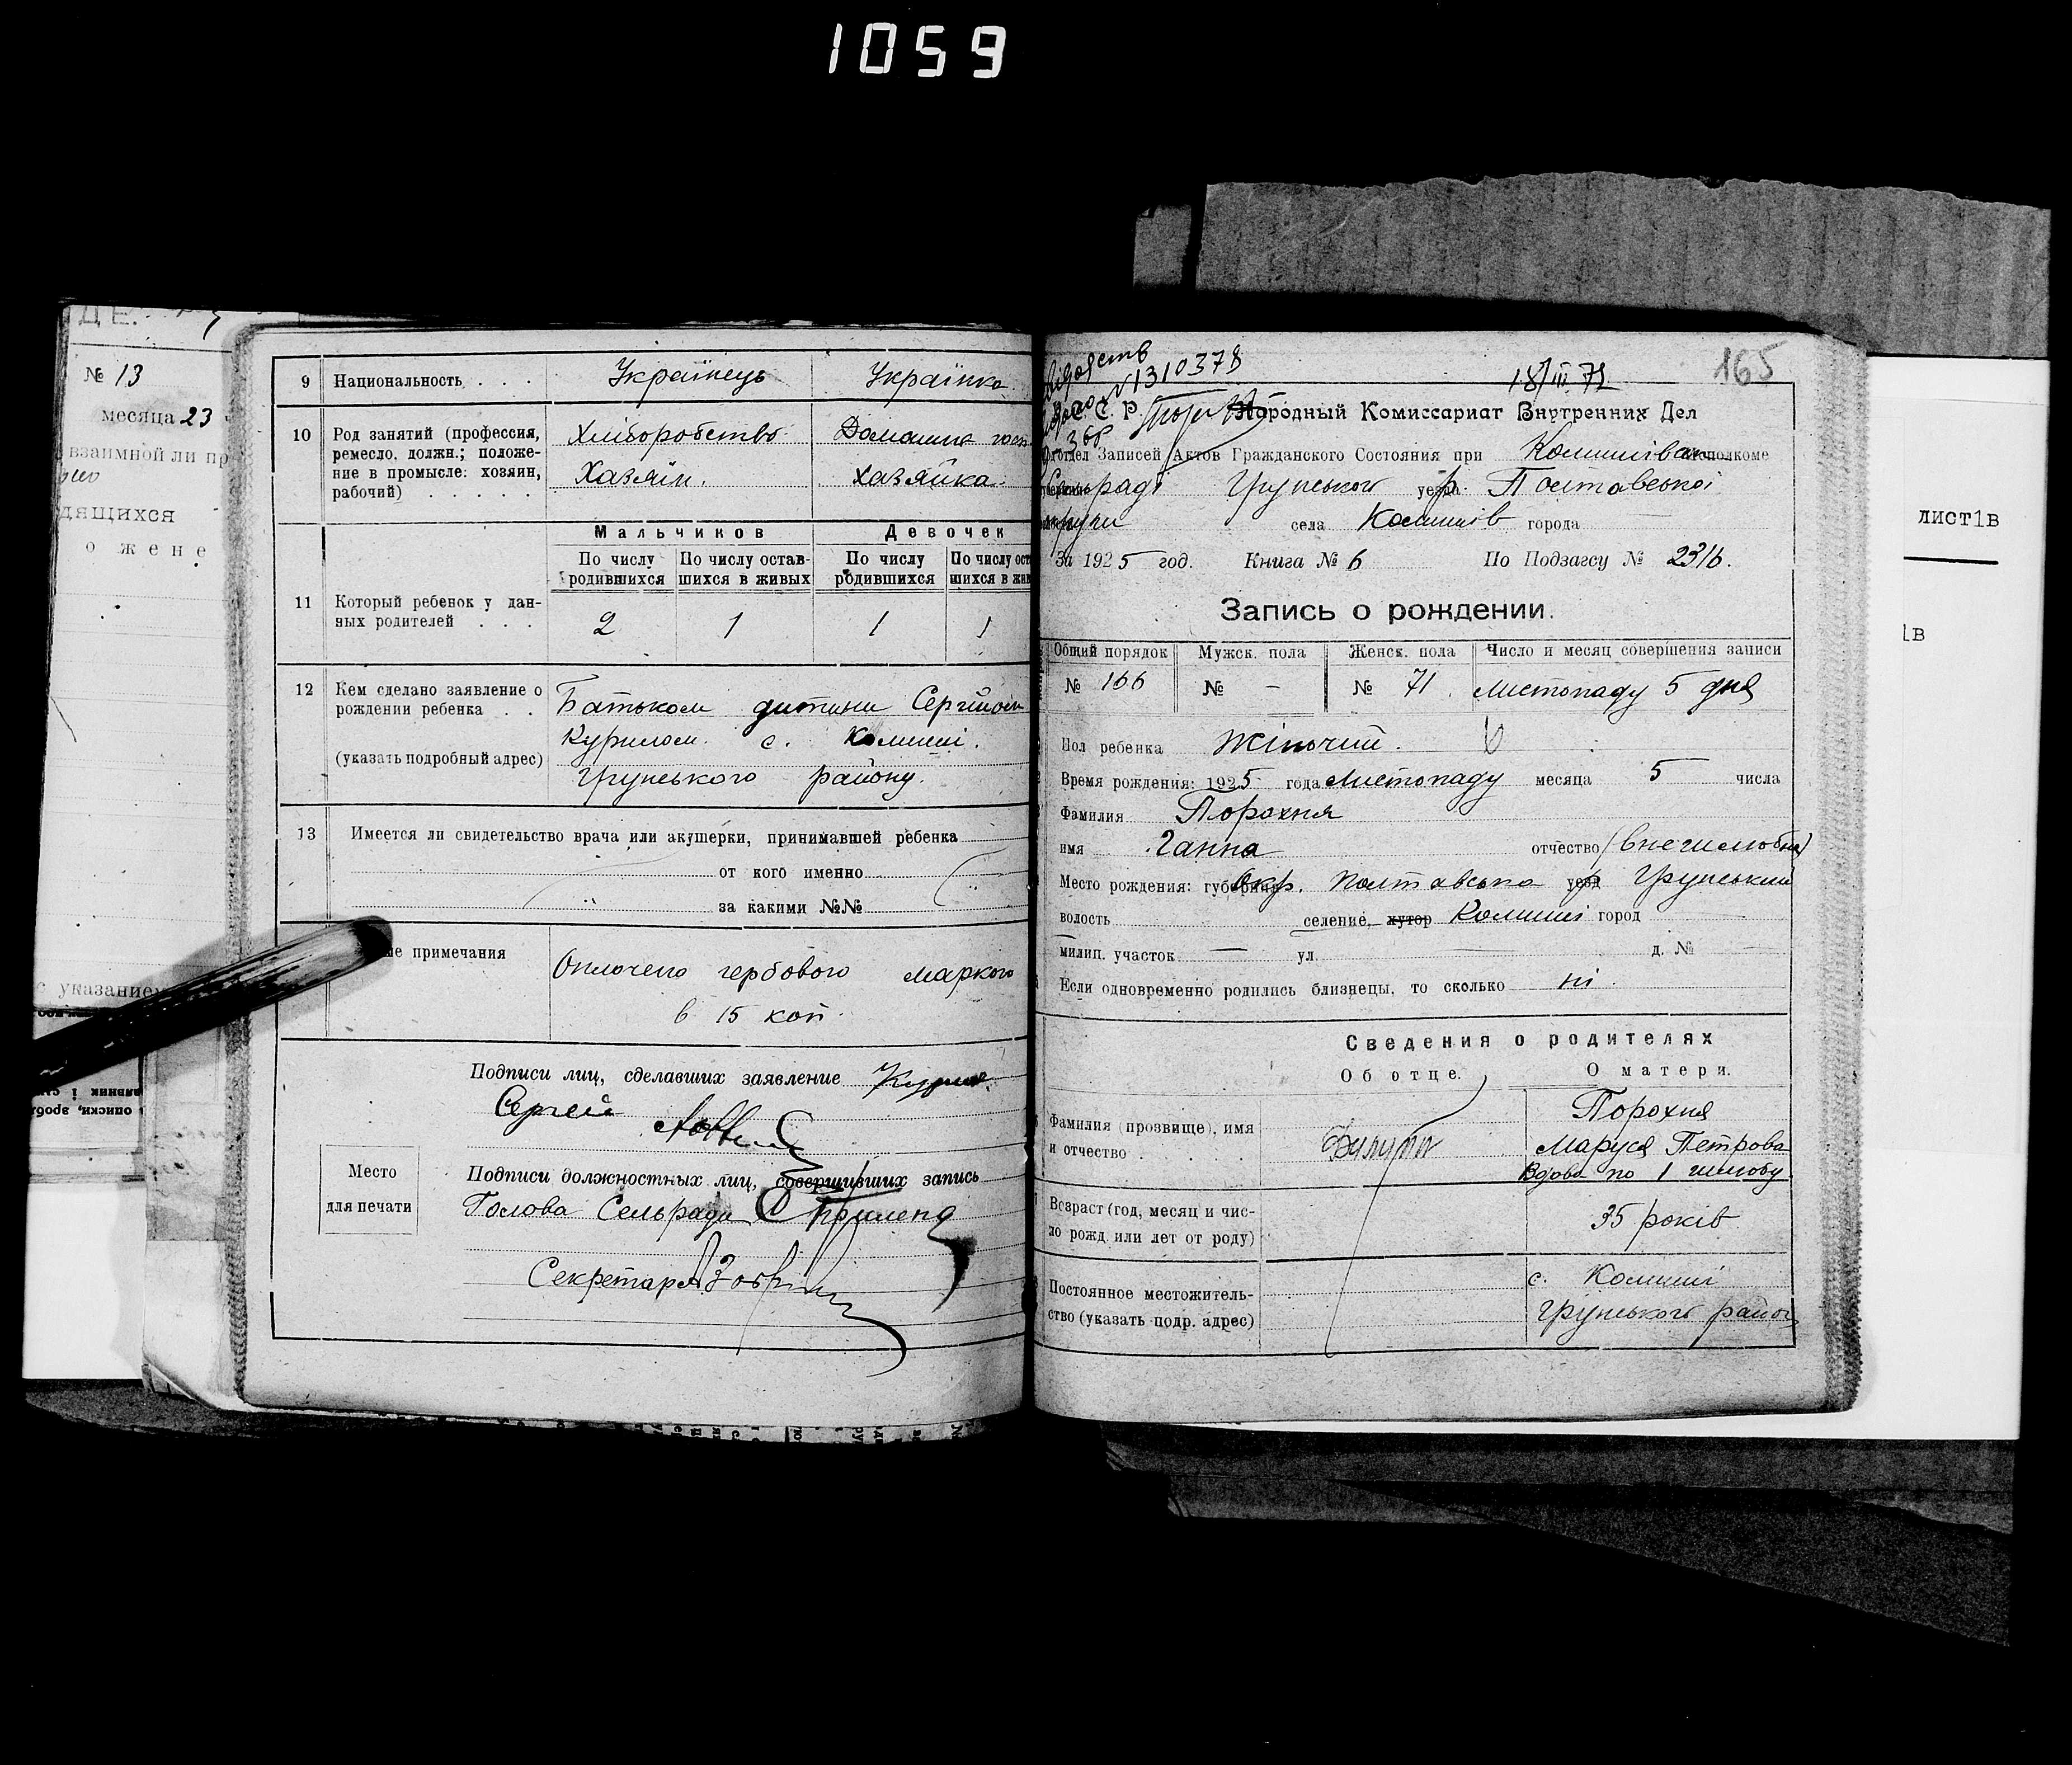 1059
№ 13
месяца 23
взаимной ли пр
дящихся
о жене
с указанием
9 Национальность . . . Українець Українка
10 Род занятий (профессия, ремесло, должн.; положение в промысле: хозяин, рабочий) . . . . .
Хліборобство Домашнє госп
Хазяїн. хазяйка.
Мальчиков Девочек
По числу родившихся По числу оставшихся в живых По числу родившихся По числу ост шихся в жив
11 Который ребенок у данных родителей . . . 2 1 1 1
12 Кем сделано заявление о рождении ребенка . . Батьком дитини Сергійом
Курилом. с. Комиші.
(указать подробный адрес) Грунського району.
13 Имеется ли свидетельство врача или акушерки, принимавшей ребенка
от кого именно
за какими №№
ые примечания Оплочено гербового маркою
в 15 коп.
Подписи лиц, сделавших заявление
Сергей
Место для печати
Подписи должностных лиц, совершивших запись
Голова Сельради
Секретар
165
№ 1310378
18/III 72
С. Р. Народный Комиссариат Внутренних Дел
отдел Записей Актов Гражданского Состояния при Комишіван исполкоме
Сельраді Грунського уезда р. Полтавської
округи села Комишів города
За 1925 год. Книга № 6 По Подзагсу № 2316.
Запись о рождении.
Общий порядок Мужск. пола Женск. пола Число и месяц совершения записи
№ 166 № - № 71. Листопаду 5 дня
Пол ребенка Жіночий.
Время рождения: 1925 года Листопаду месяца 5 числа
Фамилия Порохня
имя Ганна отчество (внешлюбна)
Место рождения: губерния окр. Полтавська уезд р Грунський
волость селение, хутор Комиші город
милиц. участок — ул. д. №
Если одновременно родились близнецы, то сколько ні.
Сведения о родителях
Об отце. О матери.
Фамилия (прозвище), имя и отчество . . . . Порохня
Маруся Петрова
Вдова по 1 шлюбу
Возраст (год, месяц и число рожд. или лет от роду) 35 років
Постоянное местожительство (указать подр. адрес) с. Комиші
Грунського район
лист1в
1в